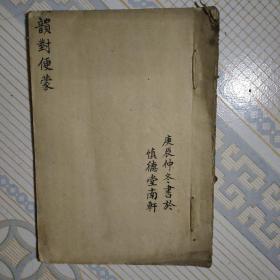 韻對便蒙
庚辰仲冬書於
慎德堂南軒